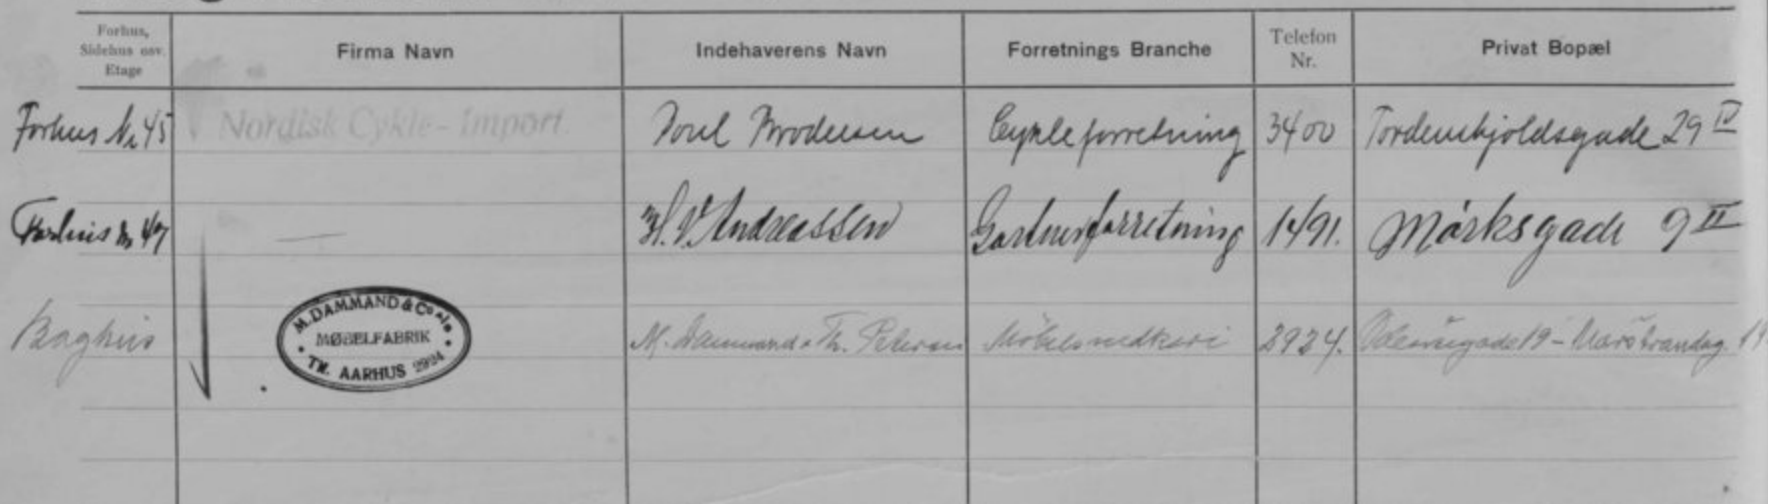 Forhus, Sidehus osv. Etage Firma Navn Indehaverens Navn Forretnings Branche Telefon Nr. Privat Bopæl
Forhus Nr 45 Nordisk Cykle-Import. Brodersen Cykleforretning 3400 Tordenskjoldsgade 29 IV
Forhus Nr 47 H. V. Andreassen Gartnerforretning 1491. Mörksgade 9 II
Baghus M. DAMMAND & Co MØBELFABRIK TLF. AARHUS 2924 M. Dammand & Th. Petersen Möbelsnedkeri 2924. Odensegade 19 -